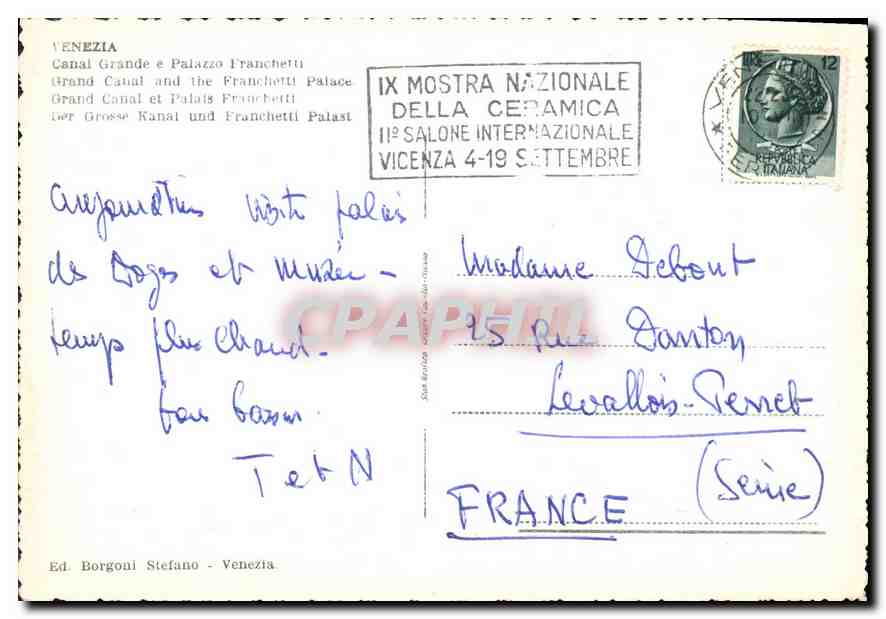 VENEZIA
Canal Grande e Palazzo Franchetti
Grand Canal and the Franchetti Palace
Grand Canal et Palais Franchetti
Der Grosse Kanal und Franchetti Palast
IX MOSTRA NAZIONALE
DELLA CERAMICA
IIº SALONE INTERNAZIONALE
VICENZA 4-19 SETTEMBRE
12
REPVBBLICA
ITALIANA
palais
des Doges et Musée -
temps plus chaud -
bons
T et N
Madame Debout
25 Rue Danton
Levallois-Perret
(Seine)
FRANCE
CPAPHIL
Ed. Borgoni Stefano - Venezia